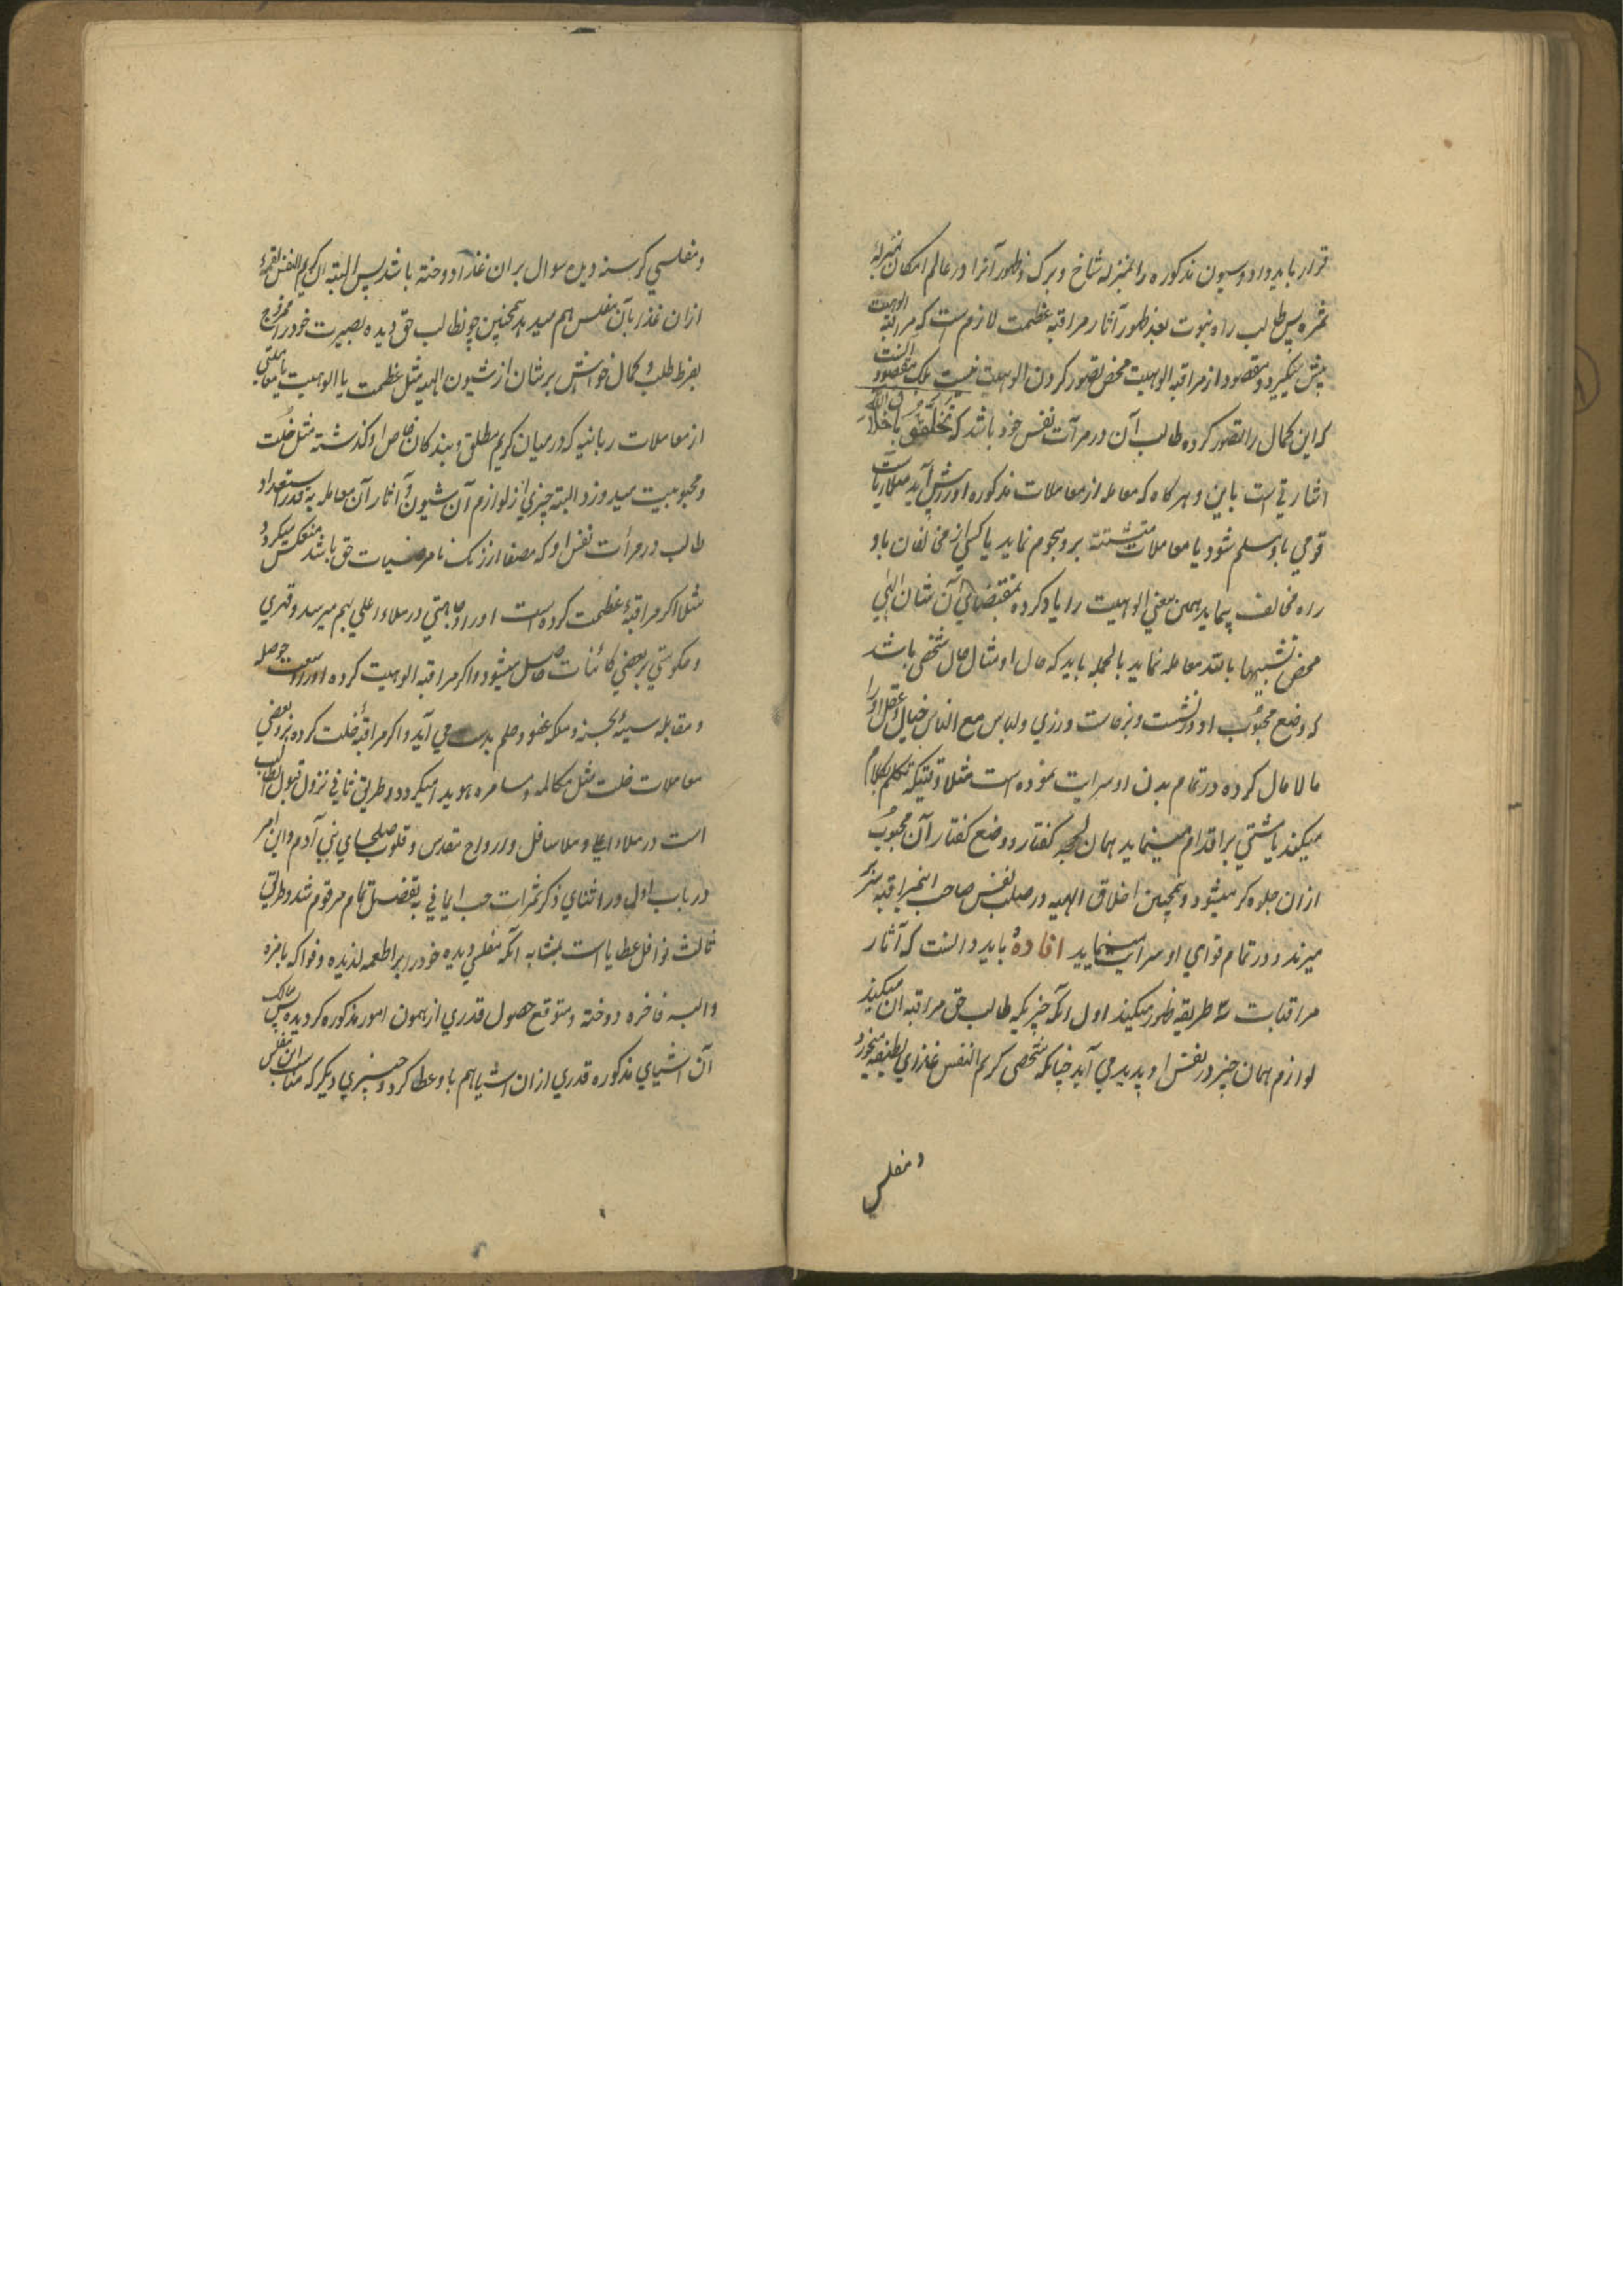 قرار باید داد و شیون مذکوره را بمنزله شاخ و برک و ظهور آنرا در عالم امکان بمنزلهٔ
ثمره پس طالب راه نبوت بعد ظهور آثار مراقبه عظمت لازم است که مراقبه الوهیت
پیش میگیرد و مقصود از مراقبه الوهیت محض تصور کردن الوهیت نیست بلک مقصود آنست
که این کمال را تصور کرده طالب آن در مرآت نفس خود باشد که تَخَلَّقُوْ باخلاق الله
اشارتی است باین و هر کاه که معامله از معاملات مذکوره او را پیش آید مثلا ریاست
قومی باو مسلم شود یا معاملات متشتته برو هجوم نماید یا کسی از مخالفان باو
راه مخالف پیماید همین معنی الوهیت را یاد کرده بمقتضای آن شان الهی
محض تشبیها بالله معامله نماید بالجمله باید که حال او مثال حال شخصی باشد
که وضع محبوب او در نشست و برخاست و رزی و لباس مع الناس خیال و عقل او را
مالامال کرده در تمام بدن او سرایت نموده است مثلا وقتیکه تکلم بکلام
میکند یا مشی بر اقدام مینماید همان لهجه گفتار و وضع کفتار آن محبوب
ازان جلوه کر میشود و همچنین اخلاق الهیه در صلب نفس صاحب اینمراقبه سر
میزند و در تمام قوای او سرایت مینماید افاده باید دانست که آثار
مراقبات سه طریقه ظهور میکیند اول انکه چیزیکه طالب حق مراقبه آن میکیند
لوازم همان چیز در نفس او پدید می آید چنانکه شخصی کریم النفس غذای لطیفه میخورد
و مفلسی
و مفلسی کرسنه دیده سوال بران غذا دوخته باشد پس البته آن کریم النفس لقمهٔ
ازان غذا بآن مفلس هم میدهد همچنین چون طالب حق دیده بصیرت خود را ممزوج
بفرط طلب و کمال خواهش بر شان از شیون الهیه مثل عظمت یا الوهیت یا معاملتی
از معاملات ربانیه که در میان کریم مطلق و بندکان خاص او کذشته مثل خلت
و محبوبیت میدوزد البته چیزی از لوازم آن شیون و آثار آن معامله به قدر استعداد
طالب در مرأت نفس او که مصفا از زنک نا مرضیات حق باشد منعکس میکردد
مثلا اکر مراقبهٔ عظمت کرده است او را وجاهتی در ملاء اعلی بهم میرسد و قهری
و حکومتی بر بعضی کائنات حاصل میشود و اکر مراقبه الوهیت کرده او را وسعت حوصله
و مقابله سیئه بحسنه و ملکه عفو و حلم بدست می آید و اکر مراقبهٔ خلت کرده برو بعضی
معاملات خلت مثل مکالمه و مسامره هویدا میکردد و طریق ثانی نزول قبول طالب
است در ملاء اعلی و ملا سافل و ارواح مقدس و قلوب صلحای بنی آدم و این امر
در باب اول در اثنای ذکر ثمرات حب ایمانی به تفصیل تمام مرقوم شد و طریق
ثالث نوافل عطایا است بمثابه انکه مفلسی دیده خود را بر اطعمه لذیذه و فواکه بامزه
و البسه فاخره دوخته و متوقع حصول قدری از همون امور مذکوره کردیده پس مالک
آن اشیای مذکوره قدری ازان اشیا هم باو عطا کرد و چیزی دیکر که مناسب آن مفلس